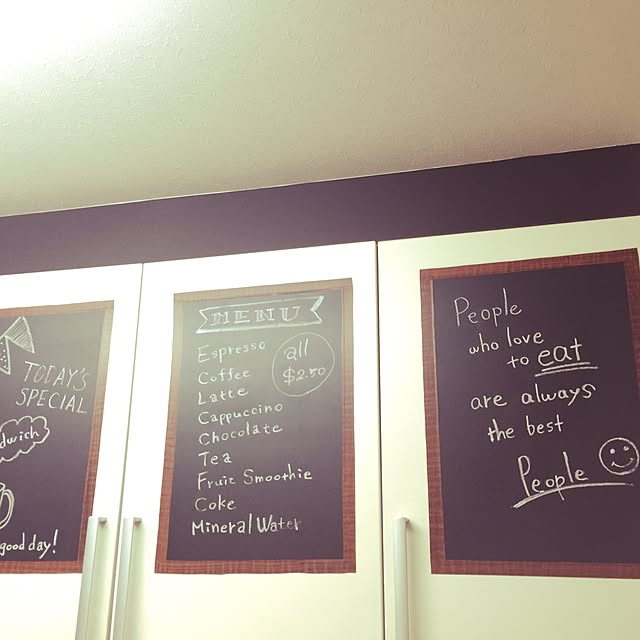 TODAY'S
SPECIAL
good day!
MENU
all
$2.50
Espresso
Coffee
Latte
Cappuccino
Chocolate
Tea
Fruit Smoothie
Coke
Mineral Water
People
who love
to eat
are always
the best
People